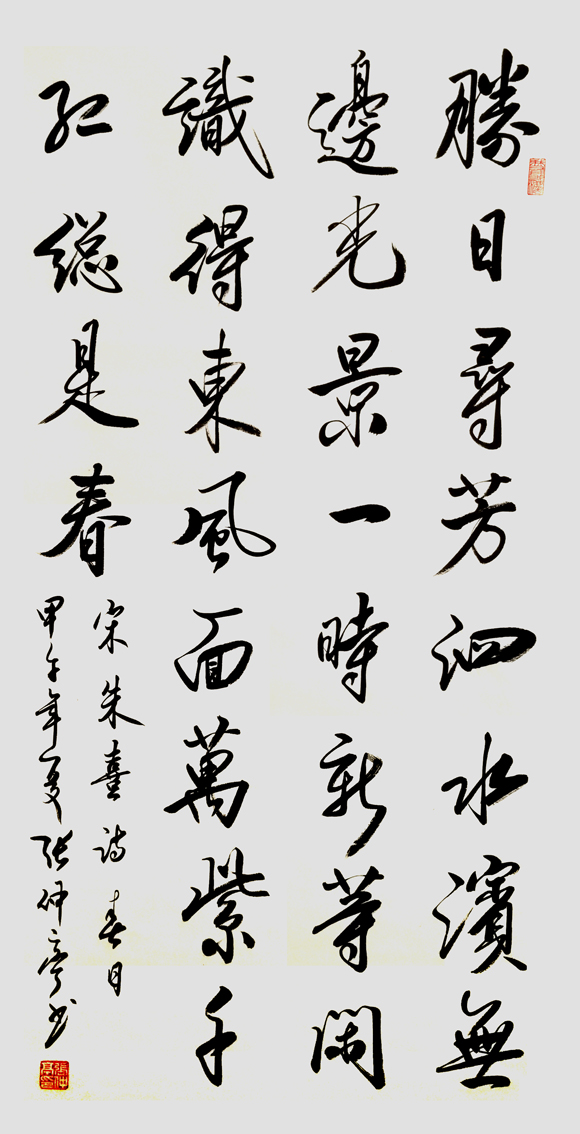 勝日尋芳泗水濱無
邊光景一時新等閑
識得東風面萬紫千
紅総是春
宋朱熹诗春日
甲午年夏张仲亭书
張仲亭印